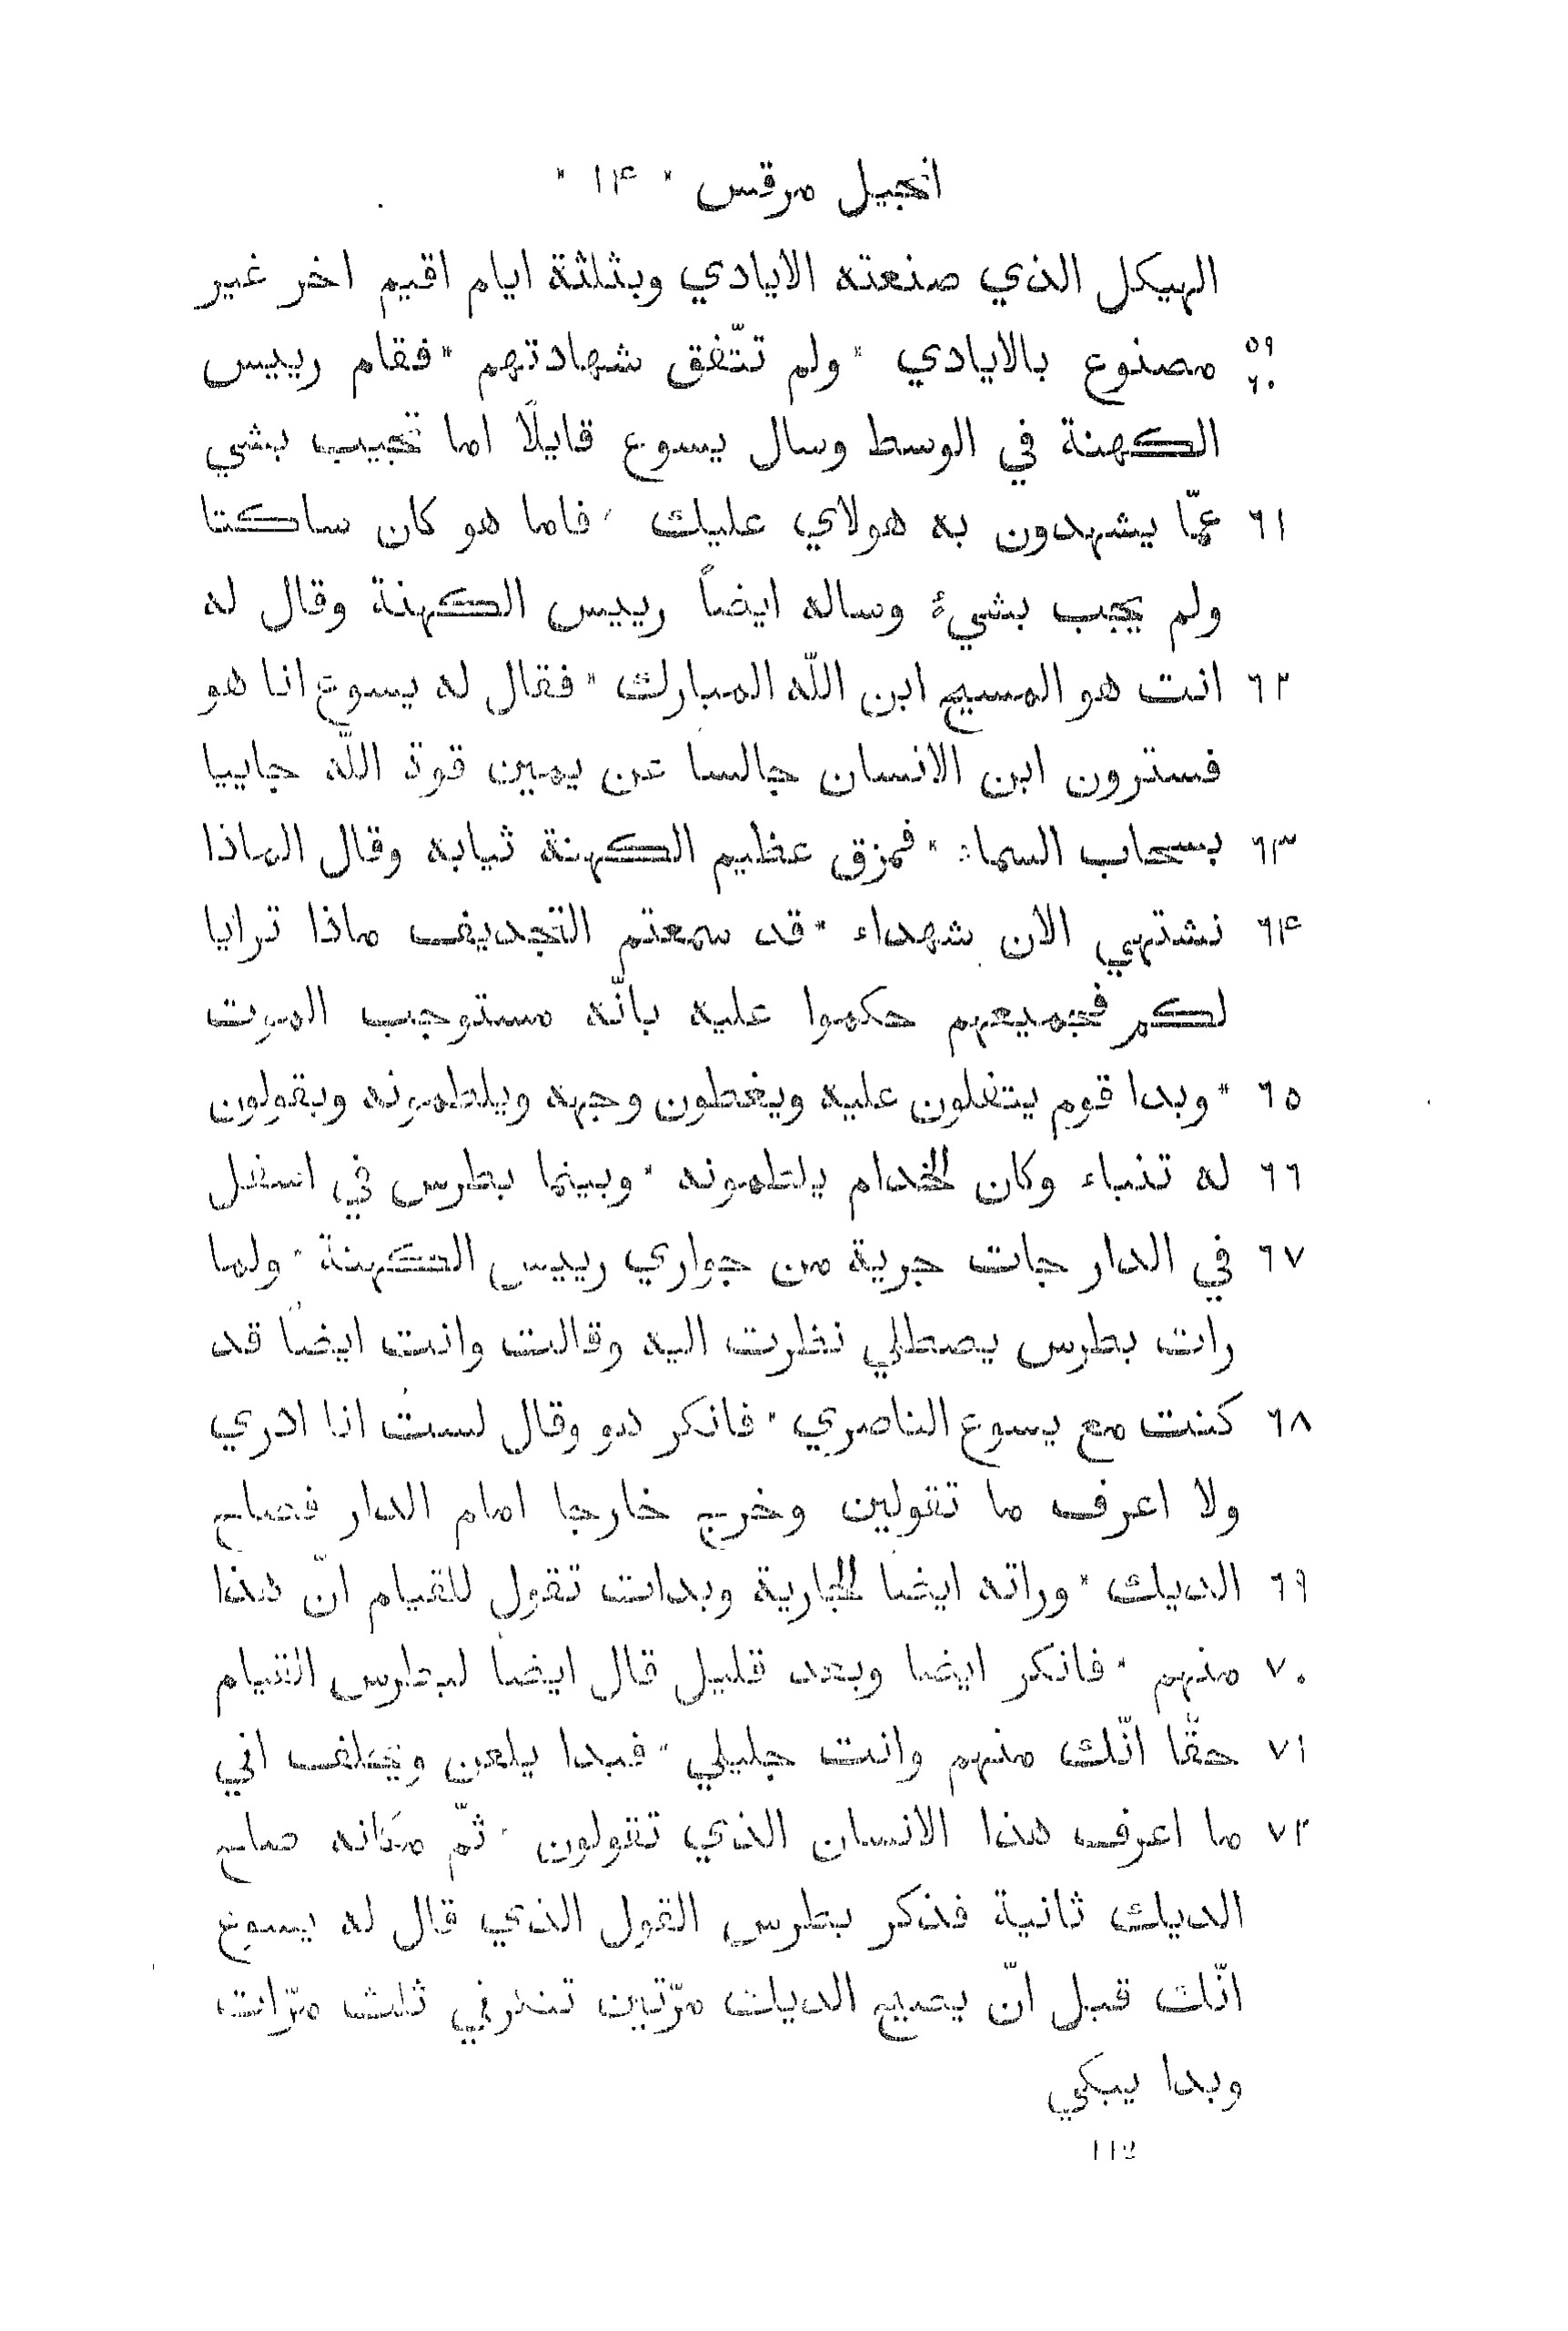 انجيل مرقس * ١۴ *
الهيكل الذي صنعته الايادي وبثلثة ايام اقيم اخر غير
٥٩ ٦٠ مصنوع بالايادي * ولم تتّفق شهادتهم * فقام ريبس
الكهنة في الوسط وسال يسوع قايلًا اما تجيب بشي
٦١ عمّا يشهدون به هولاي عليك * فاما هو كان ساكتا
ولم يجب بشيء وساله ايضاً ريبس الكهنة وقال له
٦٢ انت هو المسيح ابن اللّه المبارك * فقال له يسوع انا هو
فسترون ابن الانسان جالساً عن يمين قوة اللّه جاييا
٦٣ بسحاب السماء * فمزق عظيم الكهنة ثيابه وقال الماذا
٦۴ نشتهي الان شهداء * قد سمعتم التجديف ماذا ترايا
لكم فجميعهم حكموا عليه بانّه مستوجب الموت
٦٥ * وبدا قوم يتفلون عليه ويغطون وجهه ويلطمونه ويقولون
٦٦ له تنباء وكان الخدام يلطمونه * وبينما بطرس في اسفل
٦٧ في الدار جات جرية من جواري ريبس الكهنة * ولما
رات بطرس يصطلي نظرت اليه وقالت وانت ايضاً قد
٦٨ كنت مع يسوع الناصري * فانكر هو وقال لستُ انا ادري
ولا اعرف ما تقولين وخرج خارجا امام الدار فصاح
٦٩ الديك * وراته ايضاً الجارية وبدات تقول للقيام انّ هذا
٧٠ منهم * فانكر ايضا وبعد قليل قال ايضاً لبطرس القيام
٧١ حقًّا انّك منهم وانت جليلي * فبدا يلعن ويحلف اني
٧٢ ما اعرف هذا الانسان الذي تقولون * ثمّ مكانه صاح
الديك ثانية فذكر بطرس القول الذي قال له يسوع
انّك قبل انّ يصيح الديك مرّتين تنكرني ثلث مرّات
وبدا يبكي
112